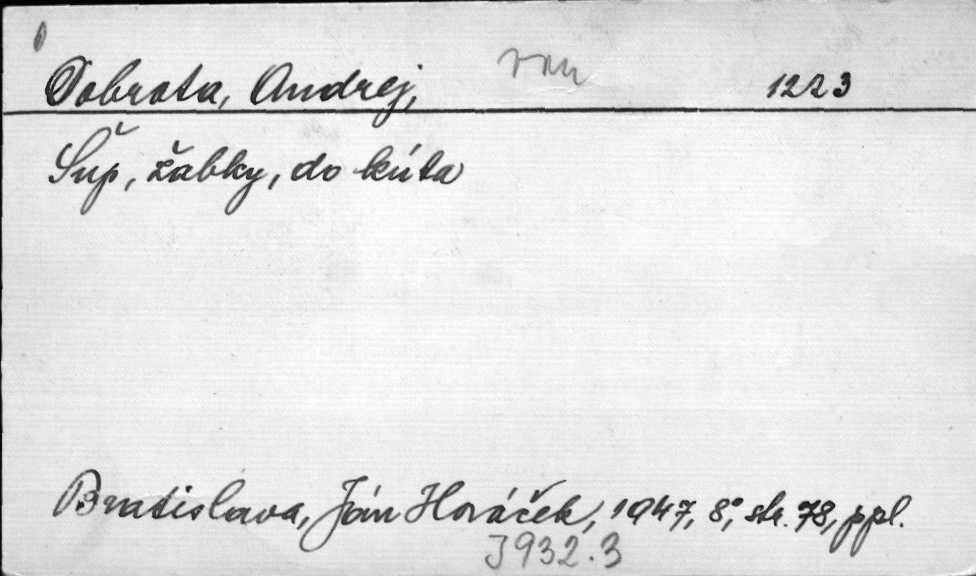 Dobrota, Andrej, 1223
Šup, žabky, do kúta
Bratislava, Ján Horáček, 1947, 8°, str. 78, ppl.
J932.3